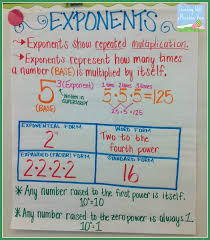 EXPONENTS
• Exponents show repeated multiplication.
• Exponents represent how many times
a number (BASE) is multiplied by itself.
5³ 3 (Exponent) 1 time 2 times 3 times
Written in superscript 5·5·5=125
(BASE)
EXPONENTIAL FORM WORD FORM
2⁴ Two to the
fourth power
EXPANDED (FACTOR) FORM STANDARD FORM
2·2·2·2 16
* Any number raised to the first power is itself.
10¹=10
* Any number raised to the zero power is always 1.
10⁰=1